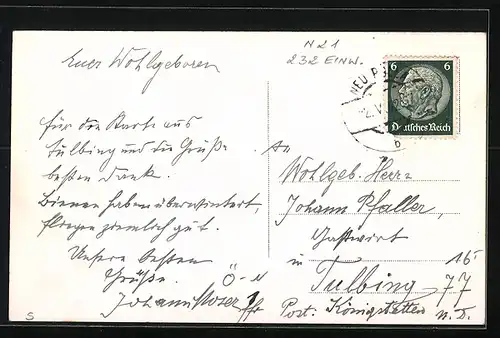 N21
232 EINW.
Euer Wohlgeboren
6 6
Deutsches Reich
NEU P
b
Für die Karte aus
Tulbing und die Grüße
besten Dank.
Bienen haben überwintert,
fliegen ziemlich gut.
Unsere besten
Grüße. Ö-N
Johann Moser
An
Wohlgeb. Herrn
Johann Pfaller,
Gastwirt
in 15.-
Tulbing 77
Post: Königstetten N.D.
S